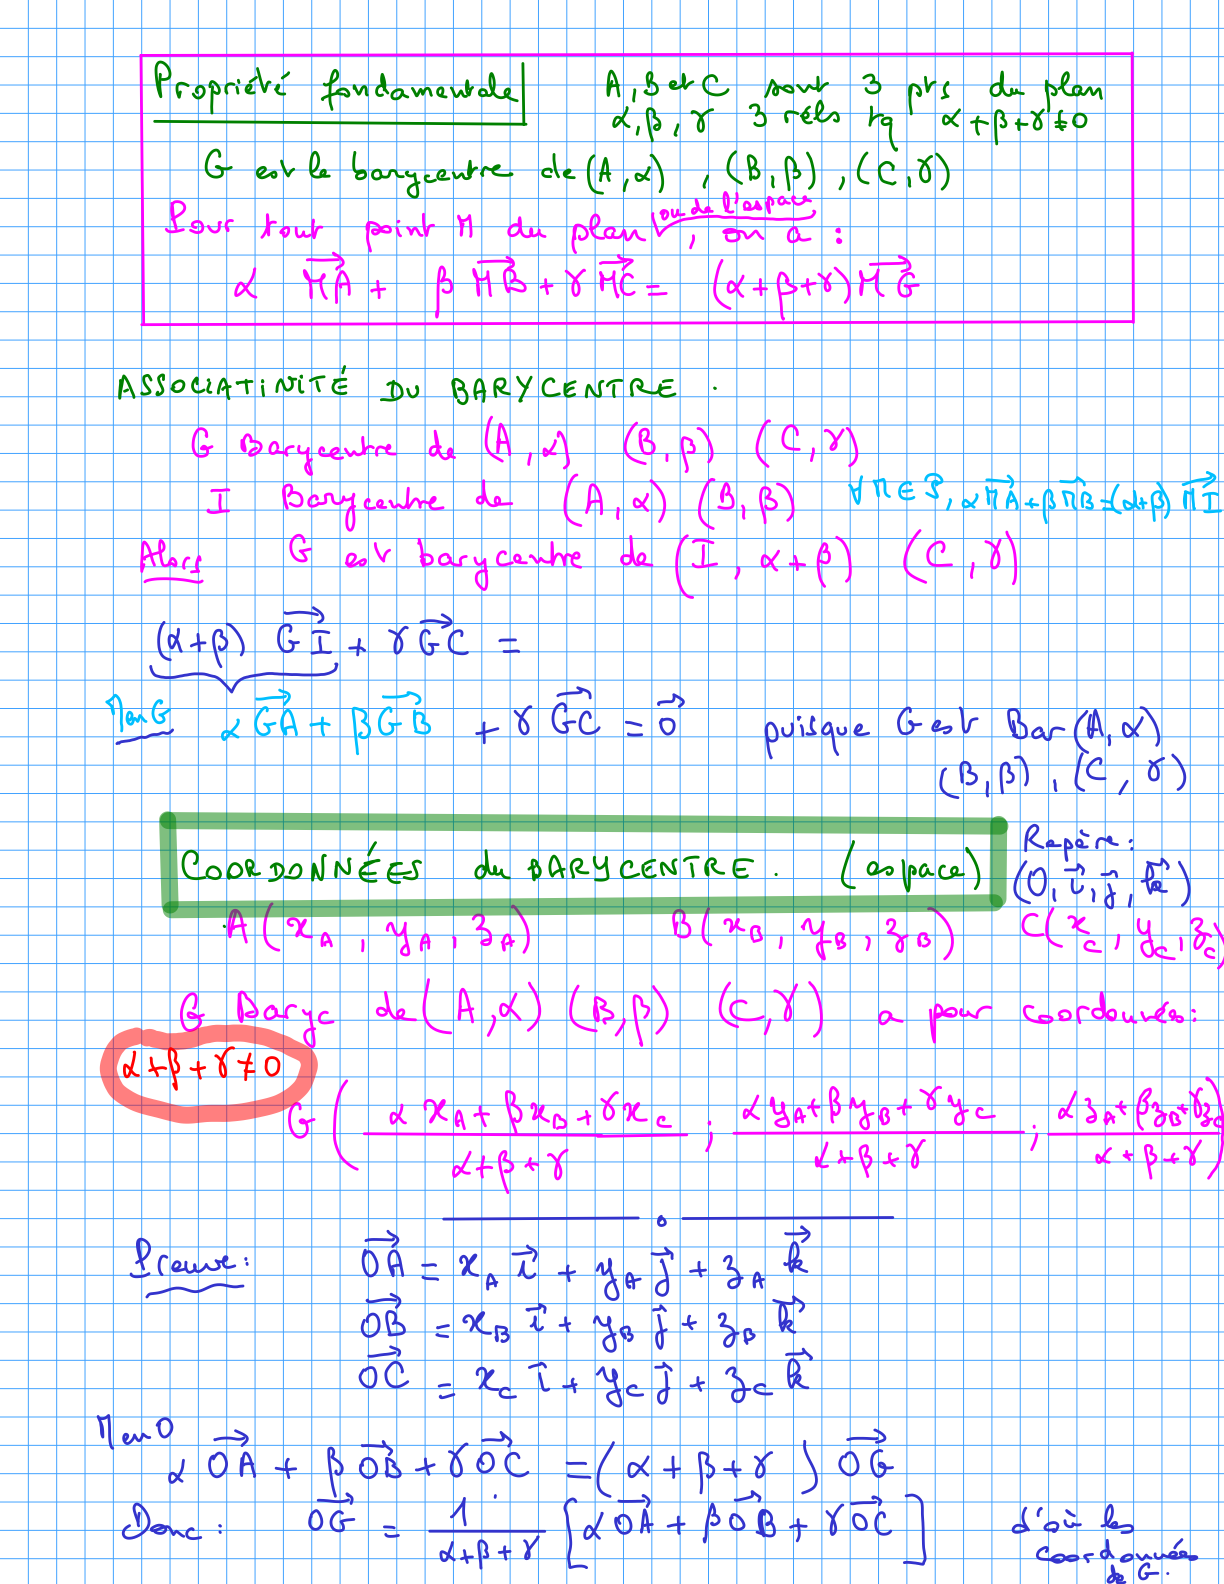 Propriété fondamentale A, B et C sont 3 pts du plan
α, β, γ 3 réels tq α+β+γ≠0
G est le barycentre de (A, α), (B, β), (C, γ)
ou de l'espace
Pour tout point M du plan, on a :
α MA⃗ + β MB⃗ + γ MC⃗ = (α+β+γ) MG⃗
ASSOCIATIVITÉ DU BARYCENTRE.
G Barycentre de (A, α) (B, β) (C, γ)
I Barycentre de (A, α) (B, β) ∀M∈P, α MA⃗ + β MB⃗ = (α+β) MI⃗
Alors G est barycentre de (I, α+β) (C, γ)
(α+β) GI⃗ + γ GC⃗ =
M en G α GA⃗ + β GB⃗ + γ GC⃗ = 0⃗ puisque G est Bar (A, α)
(B, β), (C, γ)
Repère :
COORDONNÉES du BARYCENTRE. (espace) (O, i⃗, j⃗, k⃗)
A(x_A, y_A, z_A) B(x_B, y_B, z_B) C(x_C, y_C, z_C)
G Baryc de (A, α) (B, β) (C, γ) a pour coordonnées :
α+β+γ≠0
G ( (α x_A + β x_B + γ x_C)/(α+β+γ) ; (α y_A + β y_B + γ y_C)/(α+β+γ) ; (α z_A + β z_B + γ z_C)/(α+β+γ) )
Preuve : OA⃗ = x_A i⃗ + y_A j⃗ + z_A k⃗
OB⃗ = x_B i⃗ + y_B j⃗ + z_B k⃗
OC⃗ = x_C i⃗ + y_C j⃗ + z_C k⃗
M en O
α OA⃗ + β OB⃗ + γ OC⃗ = (α+β+γ) OG⃗
Donc : OG⃗ = 1/(α+β+γ) [α OA⃗ + β OB⃗ + γ OC⃗] d'où les
coordonnées
de G.